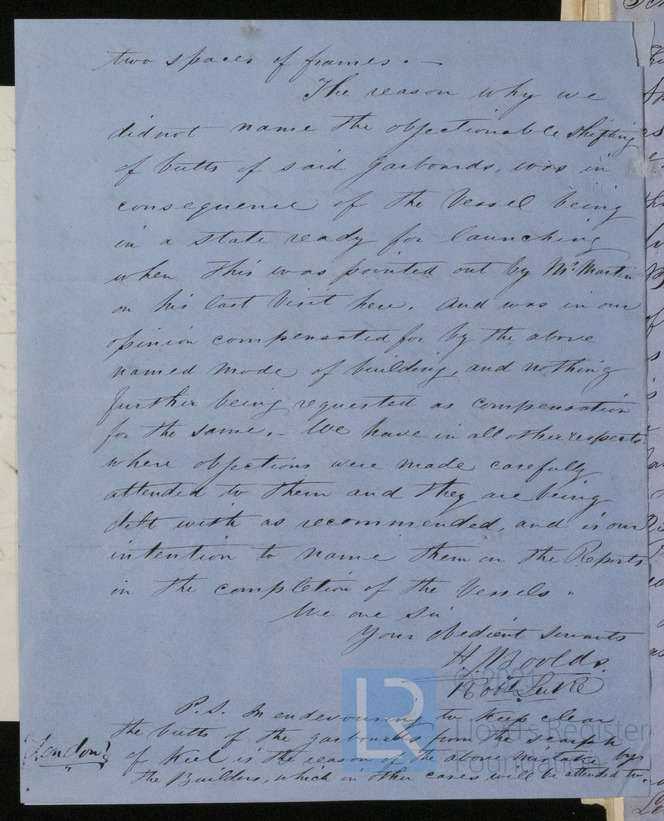 two spaces of frames. —
The reason why we
did not name the objectionable shifting
of butts of said garboards, was in
consequence of the Vessel being
in a state ready for launching
when this was pointed out by Mr Martin
on his last Visit here. And was in our
opinion compensated for by the above
named mode of building, and nothing
further being requested as compensation
for the same. — We have in all other respects
where objections were made carefully
attended to them and they are being
delt with as recommended, and is our
intention to name them on the Reports
in the completion of the Vessels.
We are Sir
Your obedient servants
H. Moolds
Robt Luke
P.S. In endevouring to keep clear
the butts of the garboards from the scarph
of Keel is the reason of the above mistake by
the Builders, which in other cases will be attended to.
London
© 2021
Lloyd's Register
Foundation
LR